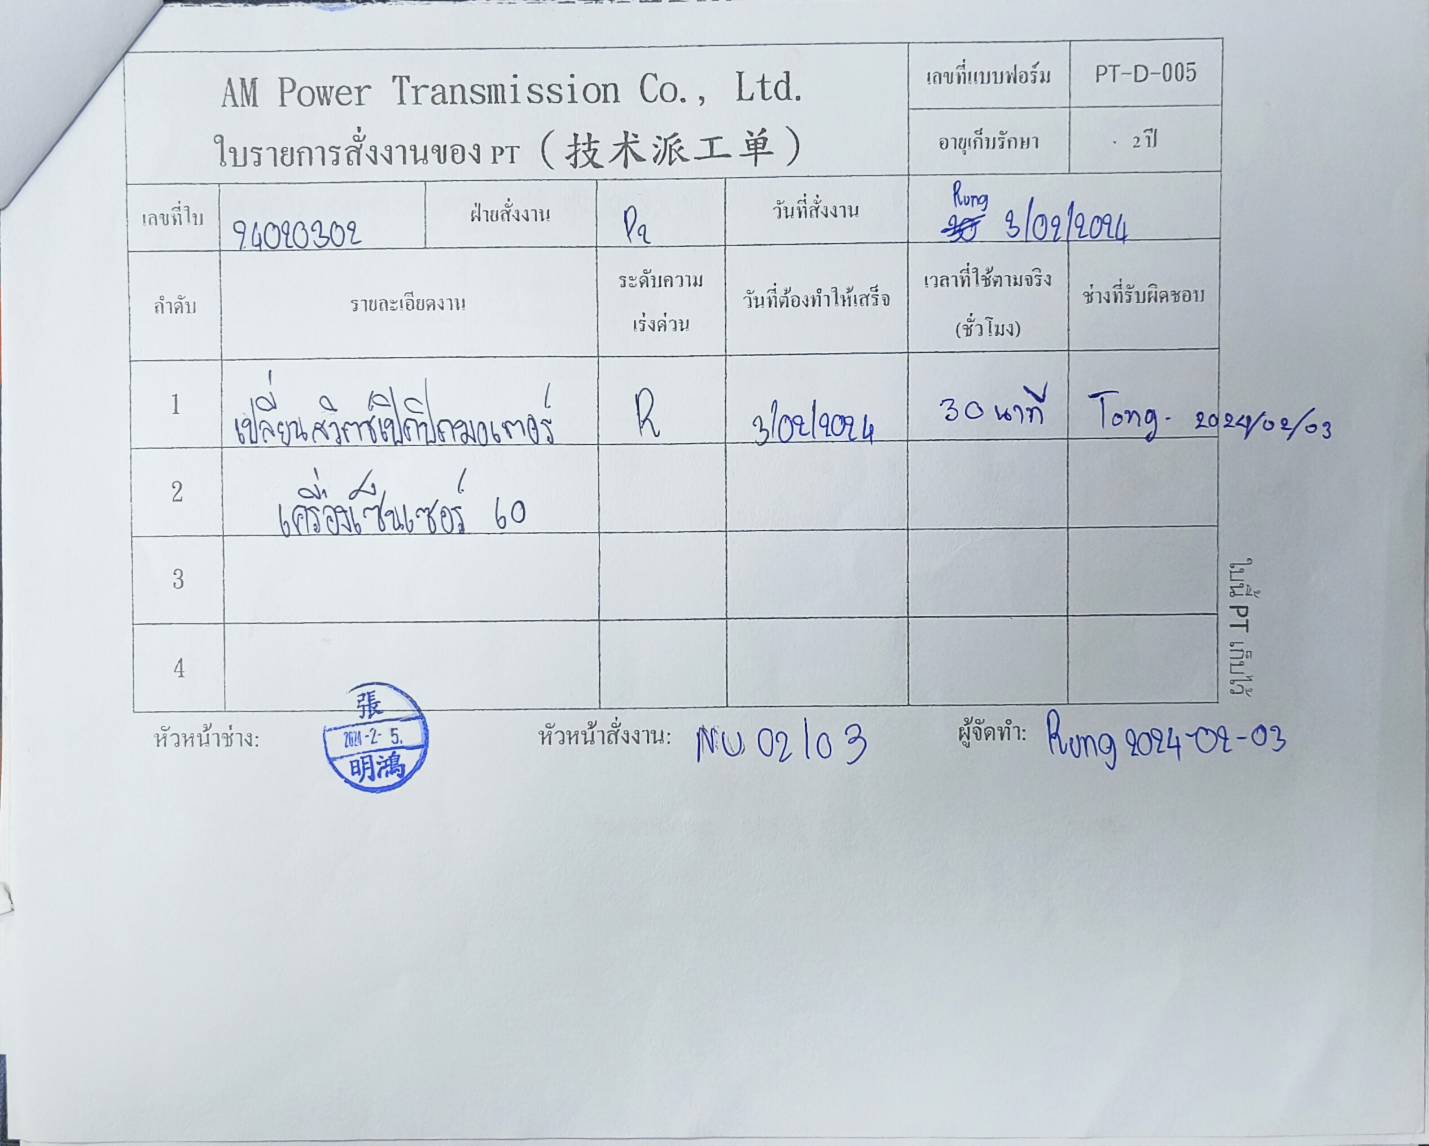 AM Power Transmission Co., Ltd.
ใบรายการสั่งงานของ PT (技术派工单)
เลขที่แบบฟอร์ม PT-D-005
อายุเก็บรักษา 2 ปี
เลขที่ใบ 24020302 ฝ่ายสั่งงาน วันที่สั่งงาน Rung 3/02/2024
ลำดับ รายละเอียดงาน ระดับความเร่งด่วน วันที่ต้องทำให้เสร็จ เวลาที่ใช้ตามจริง (ชั่วโมง) ช่างที่รับผิดชอบ
1 เปลี่ยนสวิตซ์เปิดปิดมอเตอร์ R 3/02/2024 30 นาที Tong. 2024/02/03
2 เครื่องเซ็นเซอร์ 60
3
4
ใบนี้ PT เก็บไว้
หัวหน้าช่าง: 張 2024-2-5. 明鴻 หัวหน้าสั่งงาน: 02/03 ผู้จัดทำ: Rung 2024-02-03